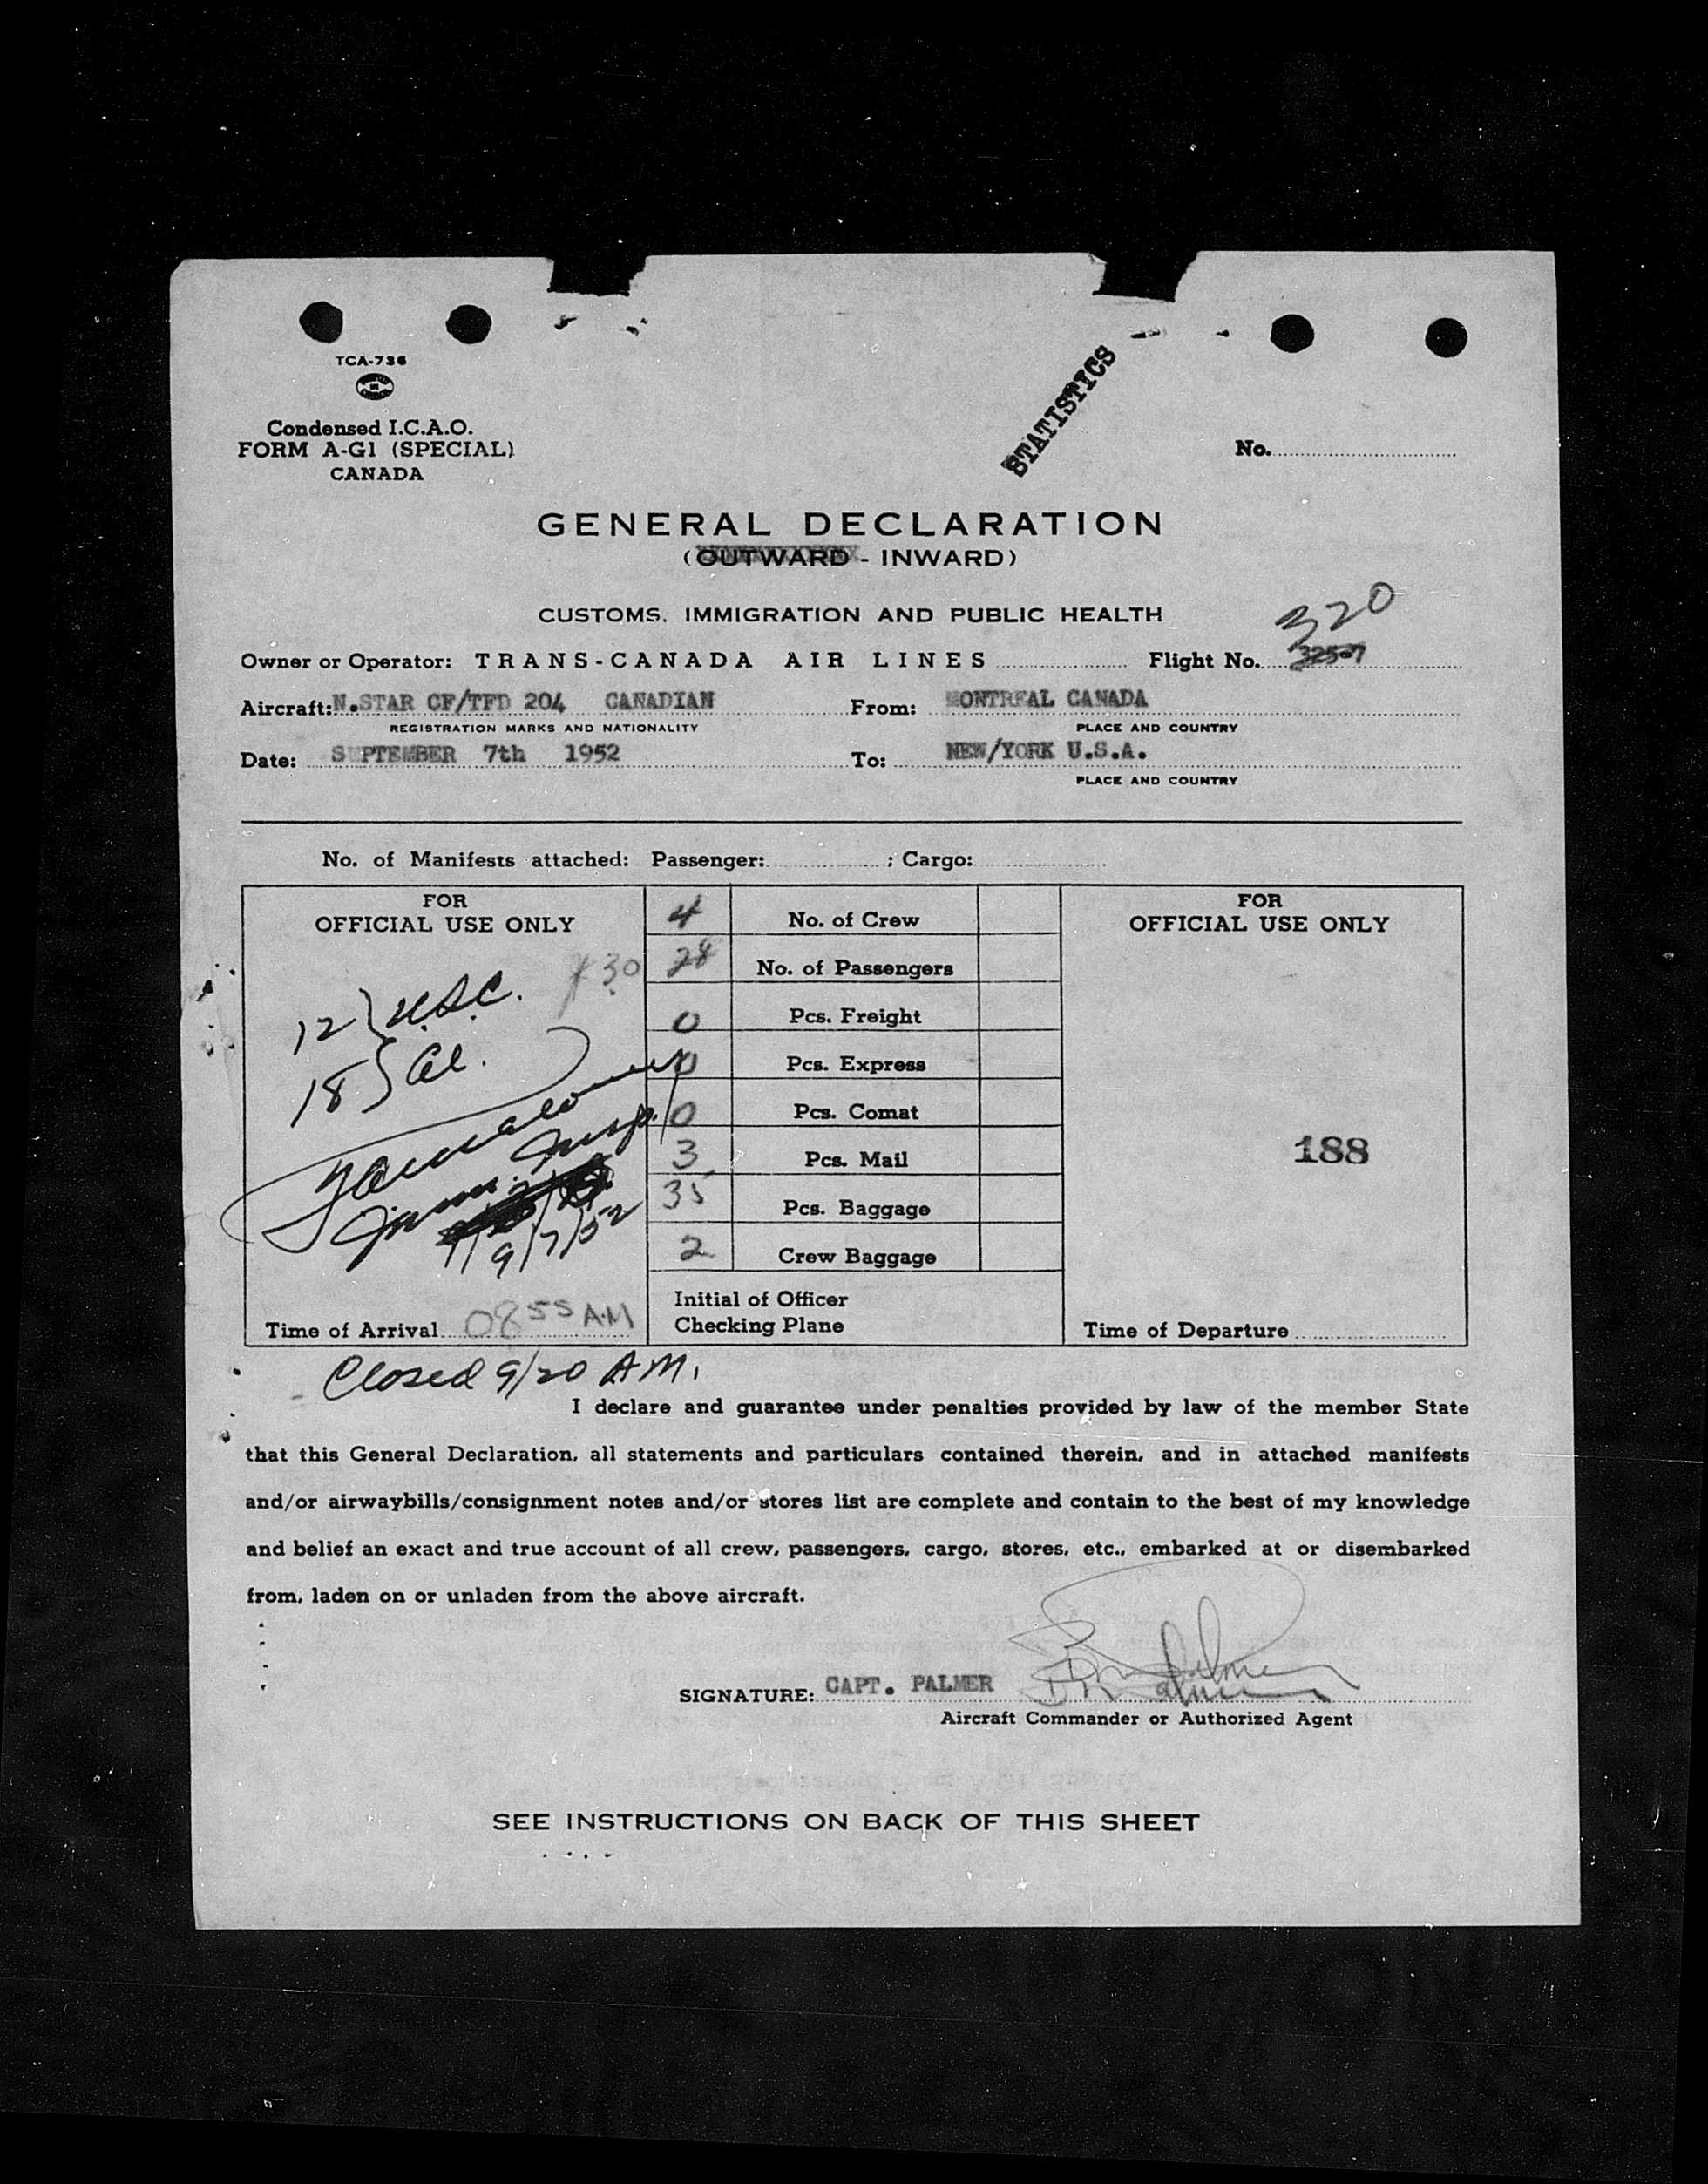 TCA-736
Condensed I.C.A.O.
FORM A-G1 (SPECIAL)
CANADA
STATISTICS
No.
GENERAL DECLARATION
(OUTWARD - INWARD)
CUSTOMS, IMMIGRATION AND PUBLIC HEALTH
320
Owner or Operator: TRANS-CANADA AIR LINES Flight No.
Aircraft: N.STAR CF/TFD 204 CANADIAN From: MONTREAL CANADA
REGISTRATION MARKS AND NATIONALITY PLACE AND COUNTRY
Date: SEPTEMBER 7th 1952 To: NEW/YORK U.S.A.
PLACE AND COUNTRY
No. of Manifests attached: Passenger: ; Cargo:
FOR
OFFICIAL USE ONLY
30
12 U.S.C.
18 Al.
Imm. Insp.
9/7/52
Time of Arrival 0855 A.M
4 No. of Crew
28 No. of Passengers
0 Pcs. Freight
0 Pcs. Express
0 Pcs. Comat
3 Pcs. Mail
35 Pcs. Baggage
2 Crew Baggage
Initial of Officer
Checking Plane
FOR
OFFICIAL USE ONLY
188
Time of Departure
Closed 9/20 A.M.
I declare and guarantee under penalties provided by law of the member State
that this General Declaration, all statements and particulars contained therein, and in attached manifests
and/or airwaybills/consignment notes and/or stores list are complete and contain to the best of my knowledge
and belief an exact and true account of all crew, passengers, cargo, stores, etc., embarked at or disembarked
from, laden on or unladen from the above aircraft.
SIGNATURE: CAPT. PALMER
Aircraft Commander or Authorized Agent
SEE INSTRUCTIONS ON BACK OF THIS SHEET